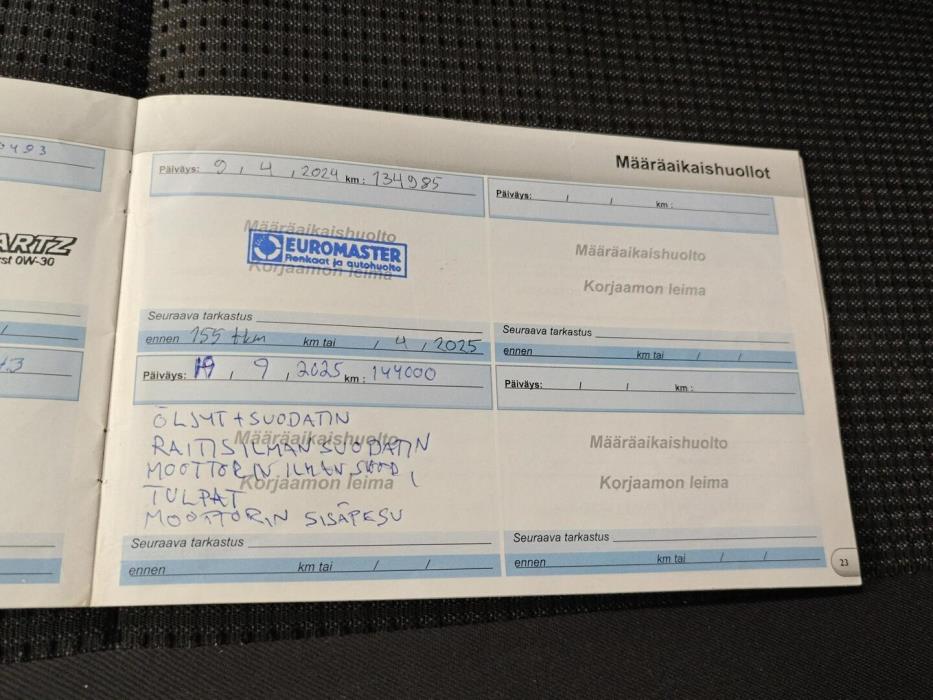 0493
ARTZ
rst 0W-30
/
43
Määräaikaishuollot
Päiväys: 9 , 4 , 2024 km: 134985
Määräaikaishuolto
EUROMASTER
Renkaat ja autohuolto
Korjaamon leima
Seuraava tarkastus
ennen 155 tkm km tai / 4 , 2025
Päiväys: / / km:
Määräaikaishuolto
Korjaamon leima
Seuraava tarkastus
ennen km tai / /
Päiväys: 19 , 9 , 2025 km: 144000
ÖLJYT + SUODATIN
RAITISILMAN SUODATIN
MOOTTORIN ILMAN SUOD,
TULPAT
MOOTTORIN SISÄPESU
Määräaikaishuolto
Korjaamon leima
Seuraava tarkastus
ennen km tai / /
Päiväys: / / km:
Määräaikaishuolto
Korjaamon leima
Seuraava tarkastus
ennen km tai / /
23